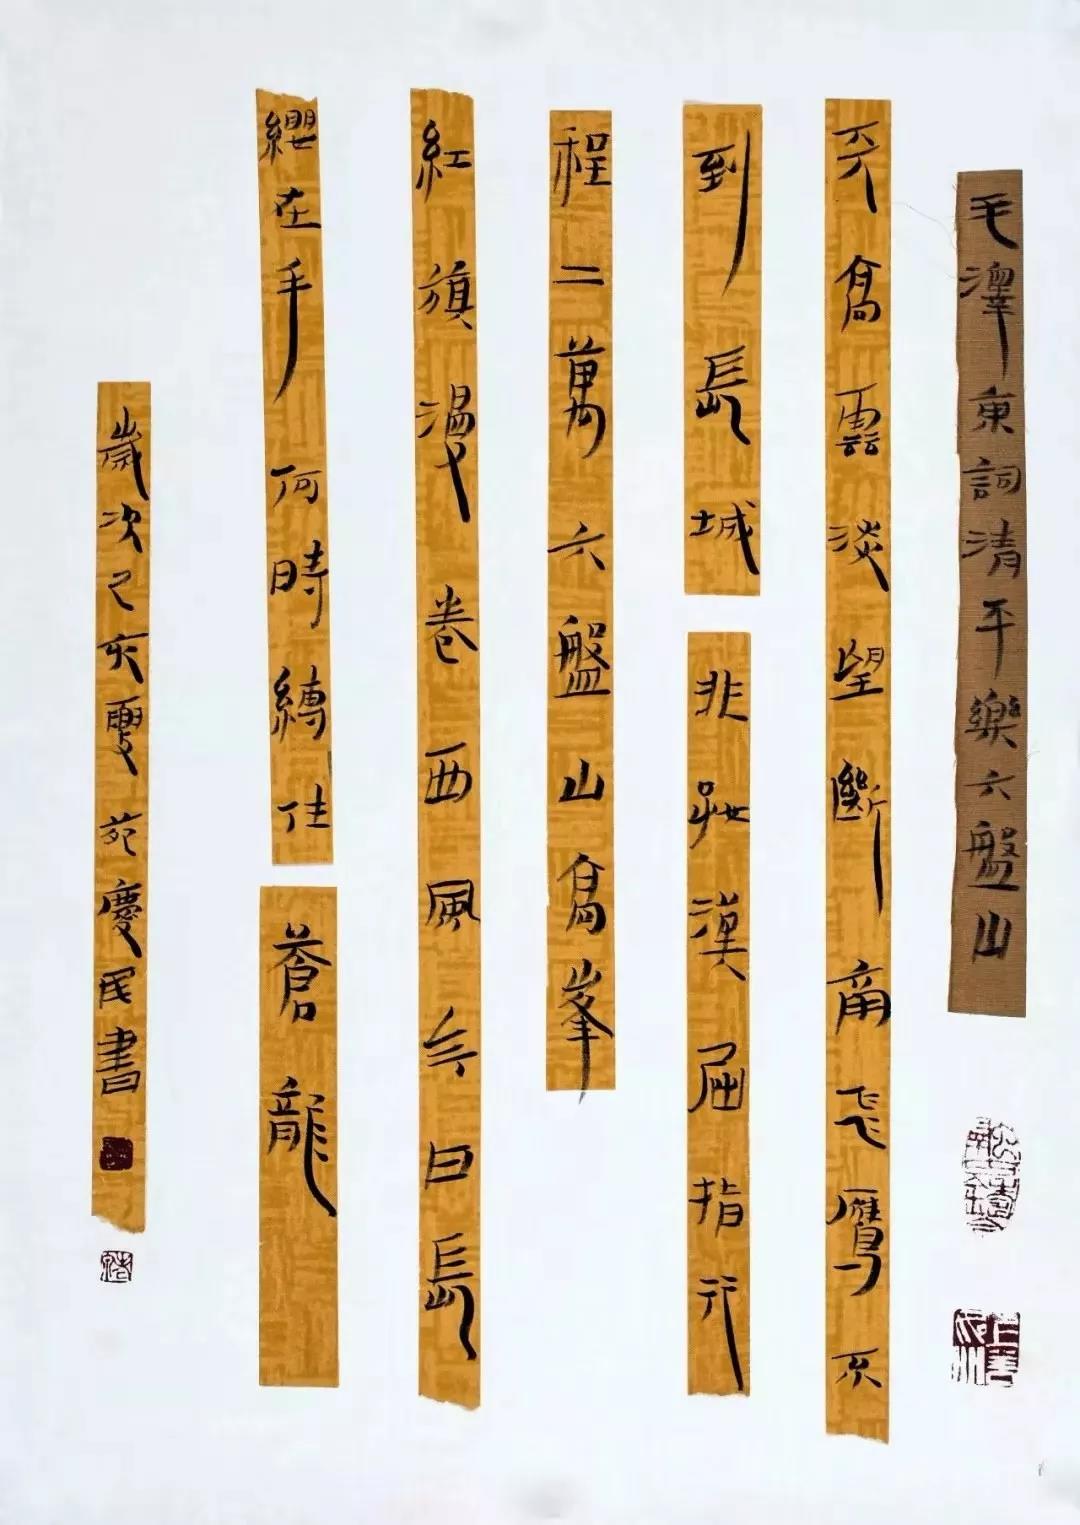 毛澤東詞清平樂六盤山
天高雲淡望斷南飛鴈不
到長城
非好漢屈指行
程二萬六盤山高峯
紅旗漫卷西風今日長
纓在手何時縛住
蒼龍
歲次己亥夏苑慶民書